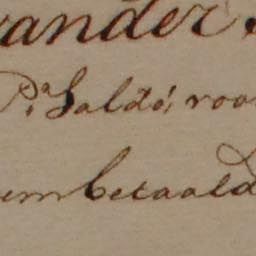 vander
P.r Saldo, voor
em betaald